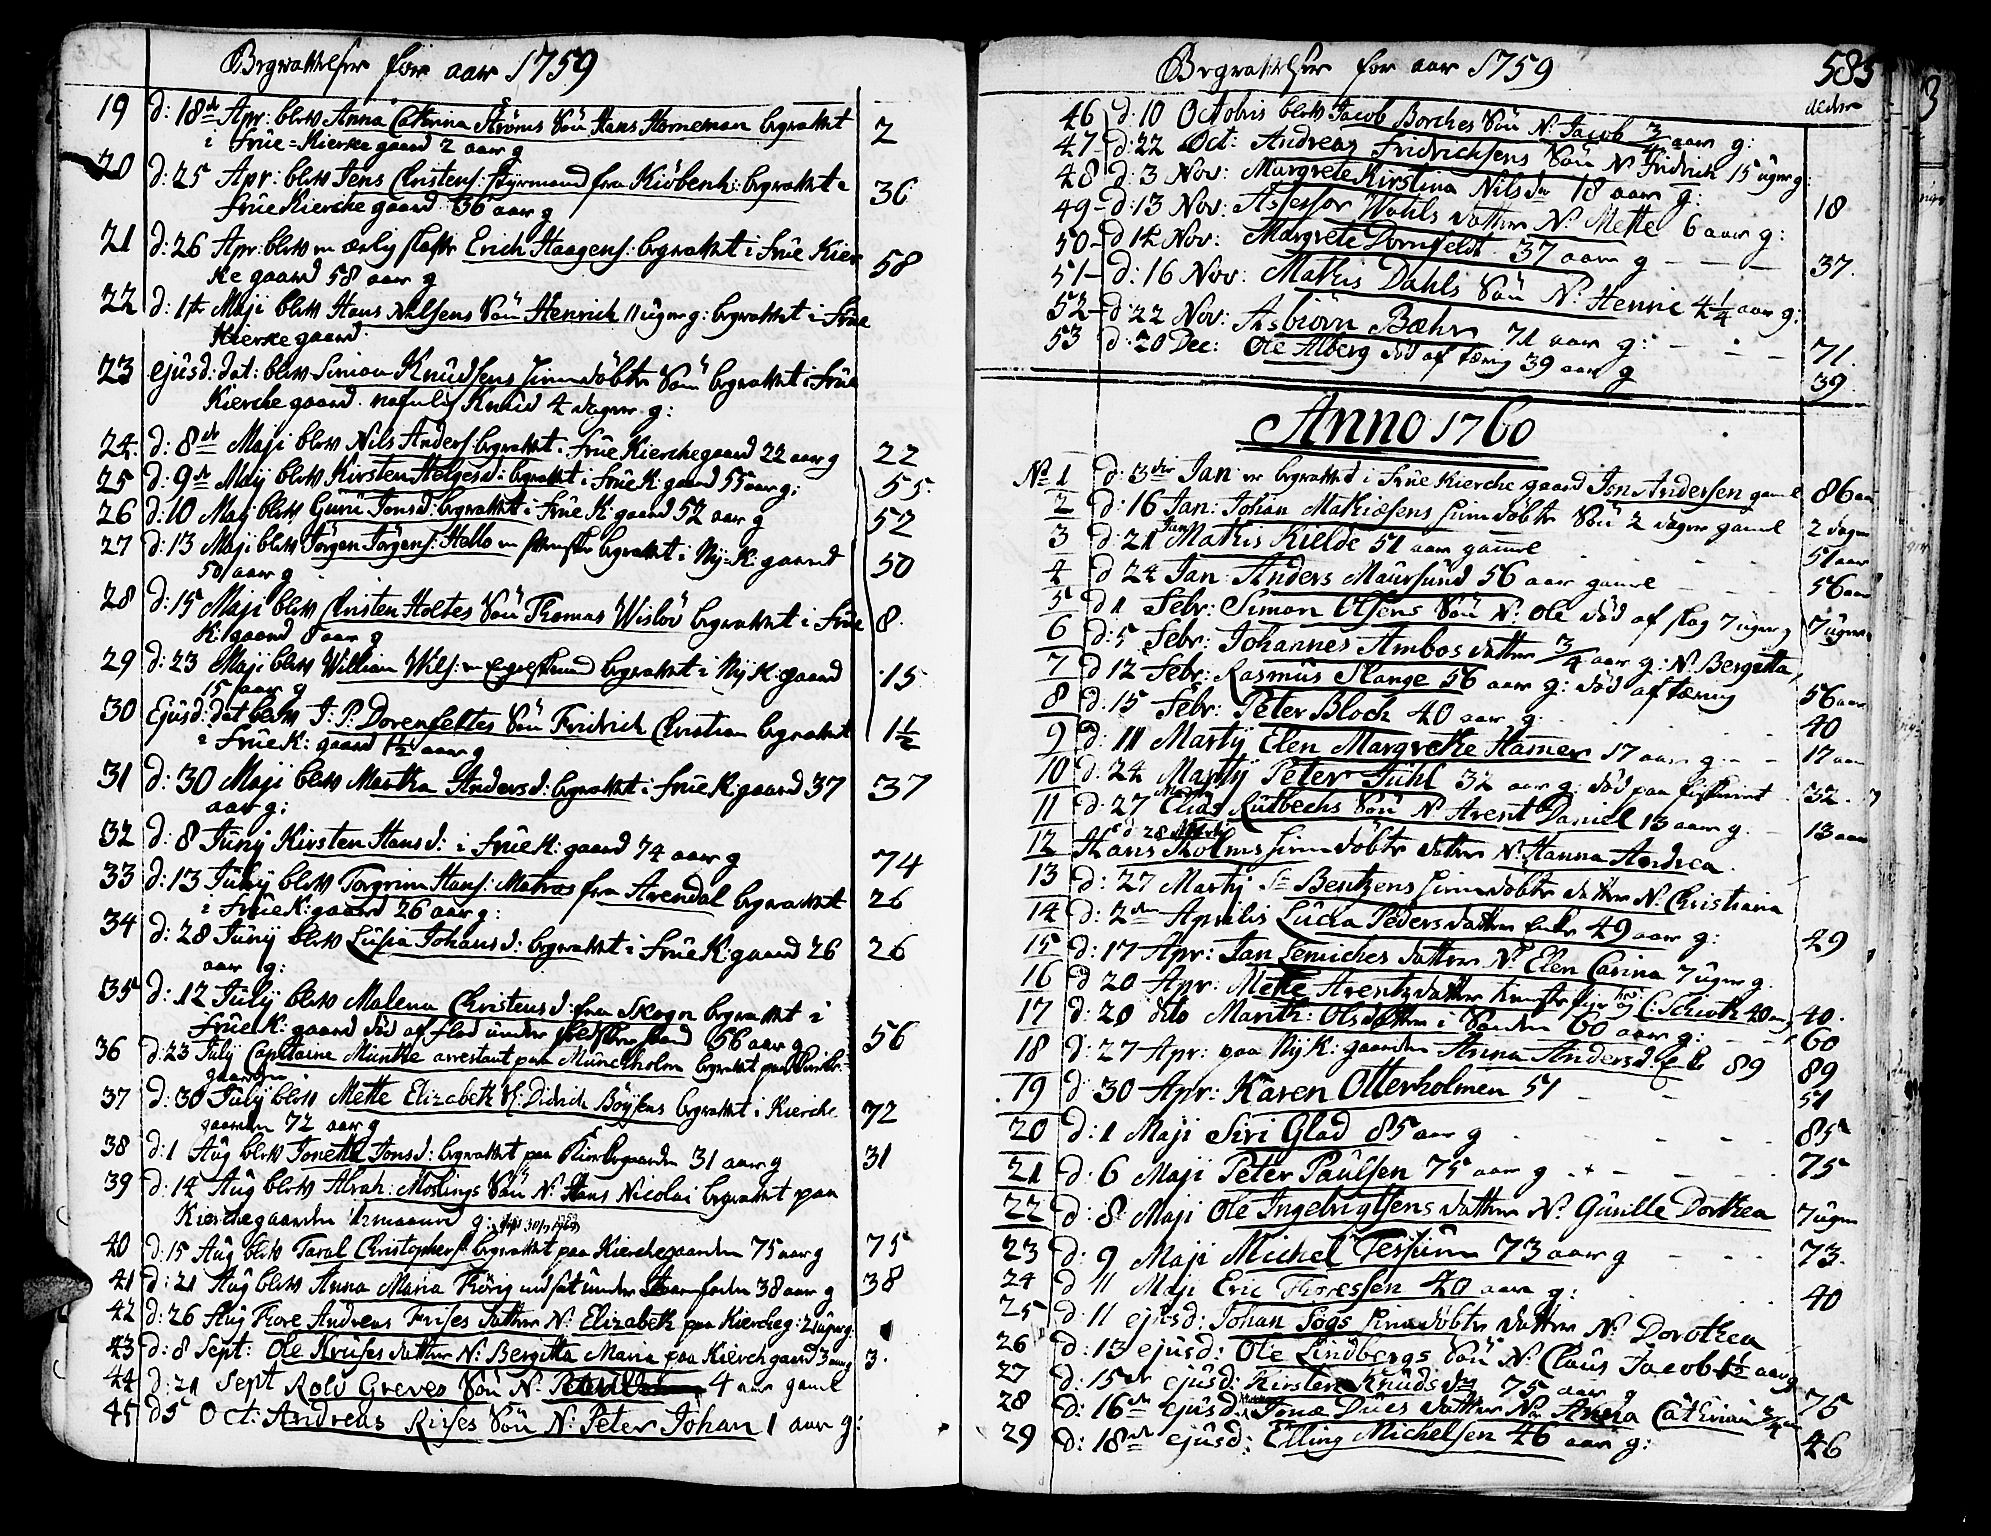 Begrattelser for aar 1759
19 d: 18de Apr: blev Anna Cathrina Ströms Sön Hans Horneman begrattet
i Früe=Kierke gaard 2 aar g 2
20 d: 25 Apr: blev Jens Christens: Styrmand fra Kiöbenh: begrattet i
Früe Kierche gaard 36 aar g 36
21 d: 26 Apr: blev en ærlig Erich Haagens: begrattet i Früe Kier
ke gaard 58 aar g 58
22 d: 1te Maji blev Hans Nilsens Sön Henrich 11 uger g: begrattet i Früe
Kierke gaard
23 ejusd: dat: blev Simon Knudsens hiemdöbte Sön begrattet i Früe
Kierche gaard nafnlig Knud 4 dager g:
24 d: 8de Maji blev Nils Anders: begrattet i Früe Kierche gaard 22 aar g 22
25 d: 9de Maij blev Kirsten Helgesd: begrattet i Früe K: gaard 55 aar g: 55
26 d: 10 Maij blev Gunü Jonsd: begrattet i Früe K: gaard 52 aar g 52
27 d: 13 Maji blev Jörgen Jörgens: Hello en begrattet i Nij=K: gaard
50 aar g 50
28 d: 15 Maji blev Christen Holtes Sön Thomas Wislöv begrattet i Früe
K: gaard 8 aar g 8
29 d: 23 Maji blev William Wils: en begrattet i Nij K: gaard
15 aar g 15
30 Ejusd: dat blev J: P: Dorenfeltes Sön Fridrich Christian begrattet
i Früe K: gaard 1½ aar g 1½
31 d: 30 Maji blev Martha Andersd: begrattet i Früe K: gaard 37
aar g: 37
32 d: 8 Junij Kirsten Hansd: i Früe K: gaard 74 aar g 74
33 d: 13 Junij blev Torgrim Hans: Matros fra Arendal begrattet
i Früe K: gaard 26 aar g: 26
34 d: 28 Junij blev Lusia Johansd: begrattet i Früe K: gaard 26
aar g: 26
35 d: 12 Julij blev Malena Christensd: fra Skogn begrattet i
Früe K: gaard död af under 56 aar g 56
36 d: 23 Julij Capitaine Münthe arrestant paa Münckholm begrattet paa
gaarden
37 d: 30 Julij blev Mette Elizabeth Didrich Böijsens begrattet i Kierche
gaarden 72 aar g 72
38 d: 1 Aug blev Jonetta Jonsd: begrattet paa Kierkegaarden 31 aar g 31
39 d: 14 Aug blev Abrah: Möslings Sön N: Hans Nicolai begrattet paa
Kierchegaarden maaned g:
40 d: 15 Aug blev Taral Christophers: begrattet paa Kierchegaarden 75 aar g 75
41 d: 21 Aug blev Anna Maria Körig 38 aar g 38
42 d: 26 Aug Andreas Frises datter N: Elizabeth paa Kiercheg: 21 uger g:
43 d: 8 Sept: Ole Krüses datter N: Bergitta Maria paa Kierchgaard 3 aar g 3
44 d: 21 Sept Rolv Greves Sön N: 4 aar gaml
45 d 5 Oct: Andreas Rises Sön N: Peter Johan 1 aar g:
Begrattelser for aar 1759 585
46 d: 10 Octobris blev Jacob Borches Sön N: Jacob ¾ aar g:
47 d: 22 Oct: Andreas Fridrichsens Sön N: Fridrich 15 uger g:
48 d: 3 Nov: Margrete Kirstina Nilsdr 18 aar g: 18
49 d: 13 Nov: Assessor Wahls datter N: Mette 6 aar g:
50 d 14 Nov: Margrete Dornfeldt 37 aar g 37
51 d: 16 Nov: Mathis Dahls Sön N: Henric 4¼ aar g:
52 d: 22 Nov: Asbiörn Bæhr 71 aar g: 71
53 d: 20 Dec: Ole Alberg död af tæring 39 aar g 39
Anno 1760
No 1 d: 3die Jan er begrattet i Früe Kierche gaard Jon Andersen gaml 86 aar
2 d: 16 Jan: Johan Mathiesens hiemdöbte Sön 2 dager gaml 2 dager
3 d: 21 Jan Mathis Kielde 51 aar gamle 51 aar
4 d 24 Jan: Anders Maursund 56 aar gamle 56 aar
5 d 1 Febr: Simon Olsens Sön N: Ole död af slag 7 uger g 7 uger
6 d: 5 Febr: Johannes Ambos datter ¾ aar g: N: Bergitta
7 d 12 Febr: Rasmus Stange 56 aar g: död af tæring 56 aar
8 d: 15 Febr: Peter Bloch 40 aar g: 40
9 d: 11 Martij Elen Margrethe Hamer 17 aar g 17 aar
10 d. 24 Martij Peter Juhl 32 aar g: död paa 32
11 d: 27 Martij Elias Rutbechs Sön N: Arent Daniel 13 aar g. 13 aar
12 d 28 Martij Hans Holms hiemdöbte datter N: Hanna Andrea
13 d: 27 Martij Sr Bentzens hiemdöbte datter N: Christiana
14 d: 2den Aprilis Lucia Pedersdatter Enke 49 aar g: 49
15 d: 17 Apr: Jan Lemiches datter N: Elen Carina 7 uger g.
16 d 20 Apr: Mette Arentzdatter C: Schiöth 40 aar 40
17 d: 20 dito Marith: Olsdatter i 60 aar g: 60
18 d: 27 Apr: paa Nij K: gaarden Anna Andersd: 89 89
19 d 30 Apr: Karen Otterholmen 51 51
20 d: 1 Maji Siri Glad 85 aar g 85
21 d: 6 Maji Peter Paulsen 75 aar g 75
22 d: 8 Maji Ole Ingebrigtsens datter N: Gunille Dorthea 7 uger
23 d: 9 Maji Michel Tessum 73 aar g 73
24 d 11 Maji Eric Thoressen 40 aar g: 40
25 d: 11 ejusd: Johan Fogs hiemdöbte datter N: Dorothea
26 d: 13 ejusd: Ole Lindbergs Sön N: Claus Jacob 1½ aar g
27 d: 15de ejusd: Kirsten Knudsdr 75 aar g 75
28 d: 16de ejusd: Jonæ Dues datter N: Anna Catharina ¾
29 d: 18de ejusd: Elling Michelsen 46 aar g: 46